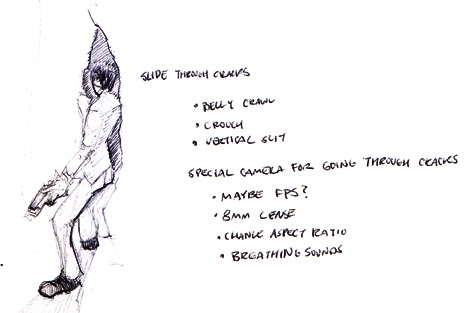 SLIDE THROUGH CRACKS
• BELLY CRAWL
• CROUCH
• VERTICAL SLIT
SPECIAL CAMERA FOR GOING THROUGH CRACKS
• MAYBE FPS?
• 8MM LENSE
• CHANGE ASPECT RATIO
• BREATHING SOUNDS